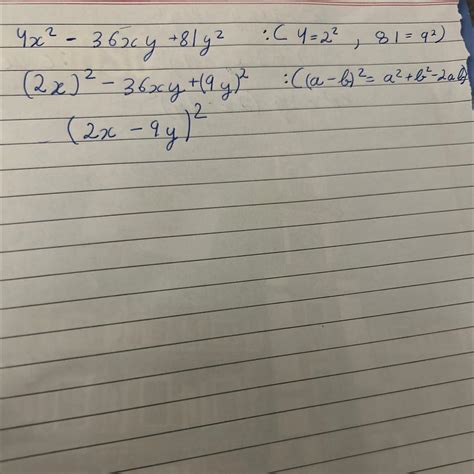 4x² - 36xy + 81y² :( 4=2² , 81=9²)
(2x)² - 36xy + (9y)² :((a-b)² = a²+b²-2ab)
(2x - 9y)²